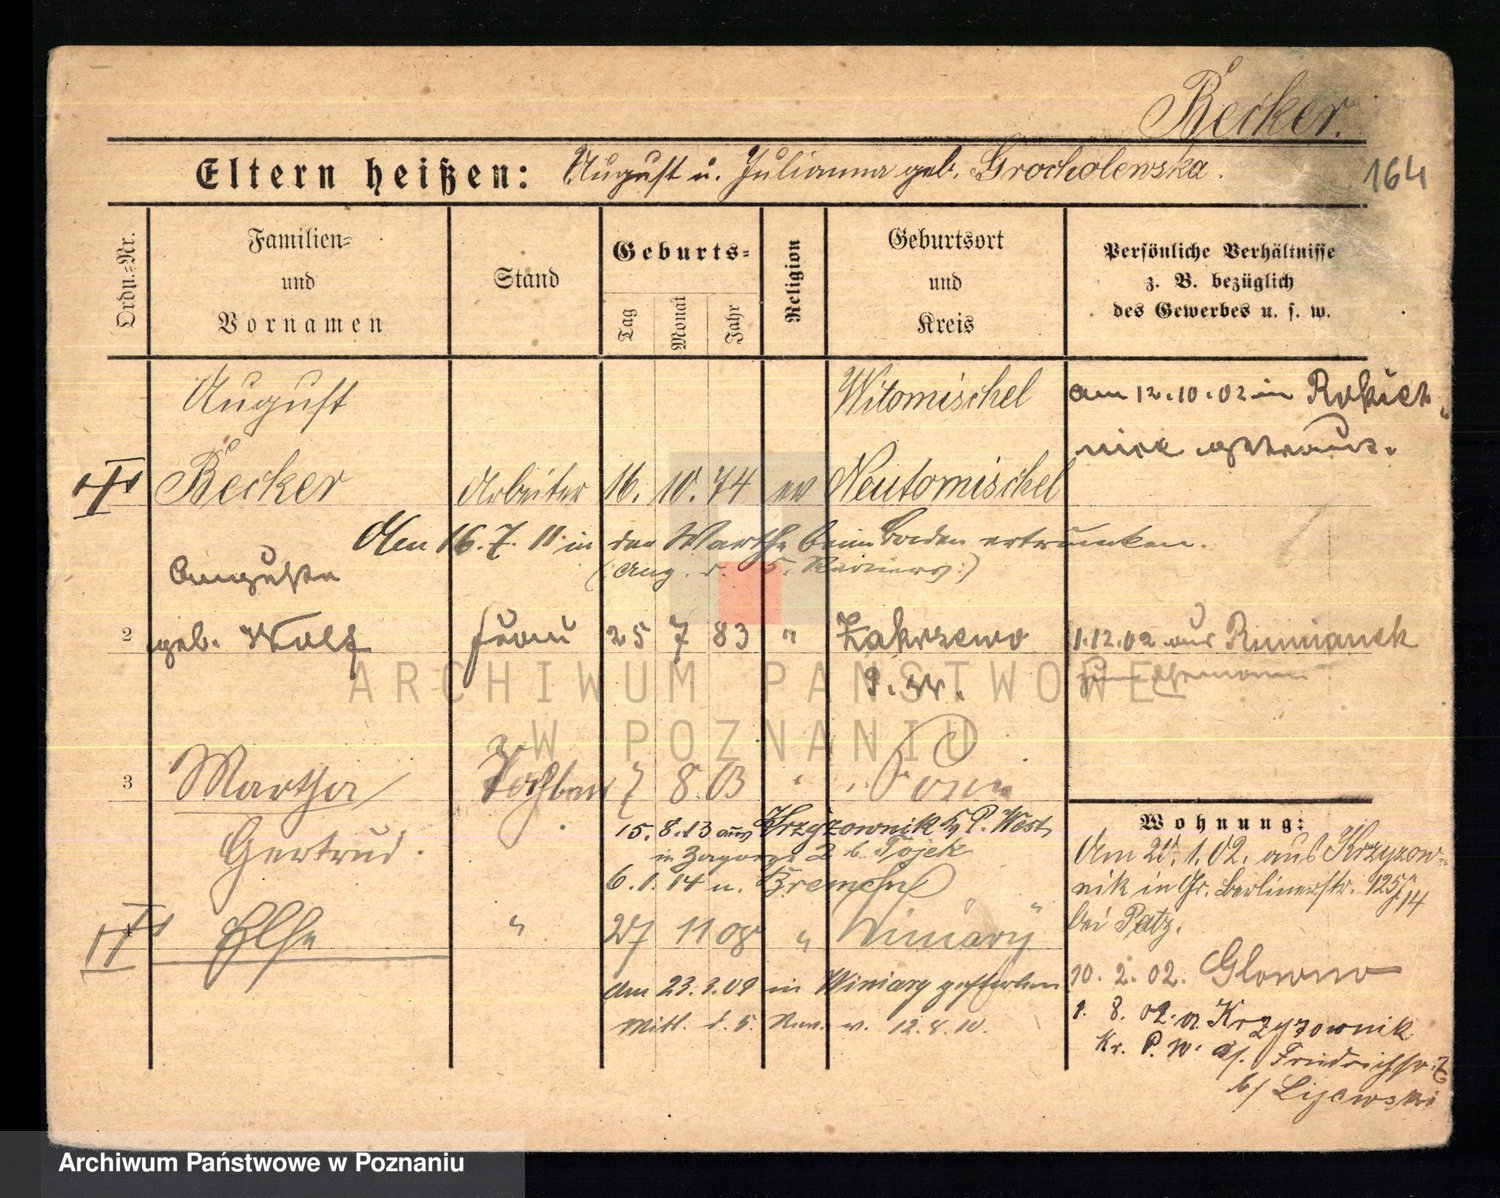 Becker.
Eltern heißen: August u. Julianna geb. Grocholewska.
164
Ordn.=Nr.
Familien=
und
Vornamen
Stand
Geburts=
Tag
Monat
Jahr
Religion
Geburtsort
und
Kreis
Persönliche Verhältnisse
z. B. bezüglich
des Gewerbes u. s. w.
August
Becker
Arbeiter
16. 10. 74
ev
Witomischel
Neutomischel
am 12.10.02 in Rokiet
nica getraut.
Am 16. 7. 11 in der Warthe beim Baden ertrunken.
2
Auguste
geb. Wolf
Frau
25 7 83
"
Zakrzewo
P. W.
1.12.02 aus Rumianek
zum Ehemann
3
Martha
Gertrud.
Tochter
7 8. 03
"
" Posen
15. 8. 13 aus Krzyzownik Kr P. West
in Zagorze 2 b. Tojek
6. 1. 14 n. Bremen
Else
"
27 11 08
"
Winiary
am 23. 1. 09 in Winiary gestorben
Mitt. d. 5. Rev. v. 12. 8. 10.
Wohnung:
Am 20. 1. 02. aus Krzyzow=
nik in Gr. Berlinerstr. 125/14
bei Patz.
10. 2. 02. Glowno
1. 8. 02. n Krzyzownik
Kr. P. W.
b/ Lijewski
ARCHIWUM PAŃSTWOWE
W POZNANIU
Archiwum Państwowe w Poznaniu